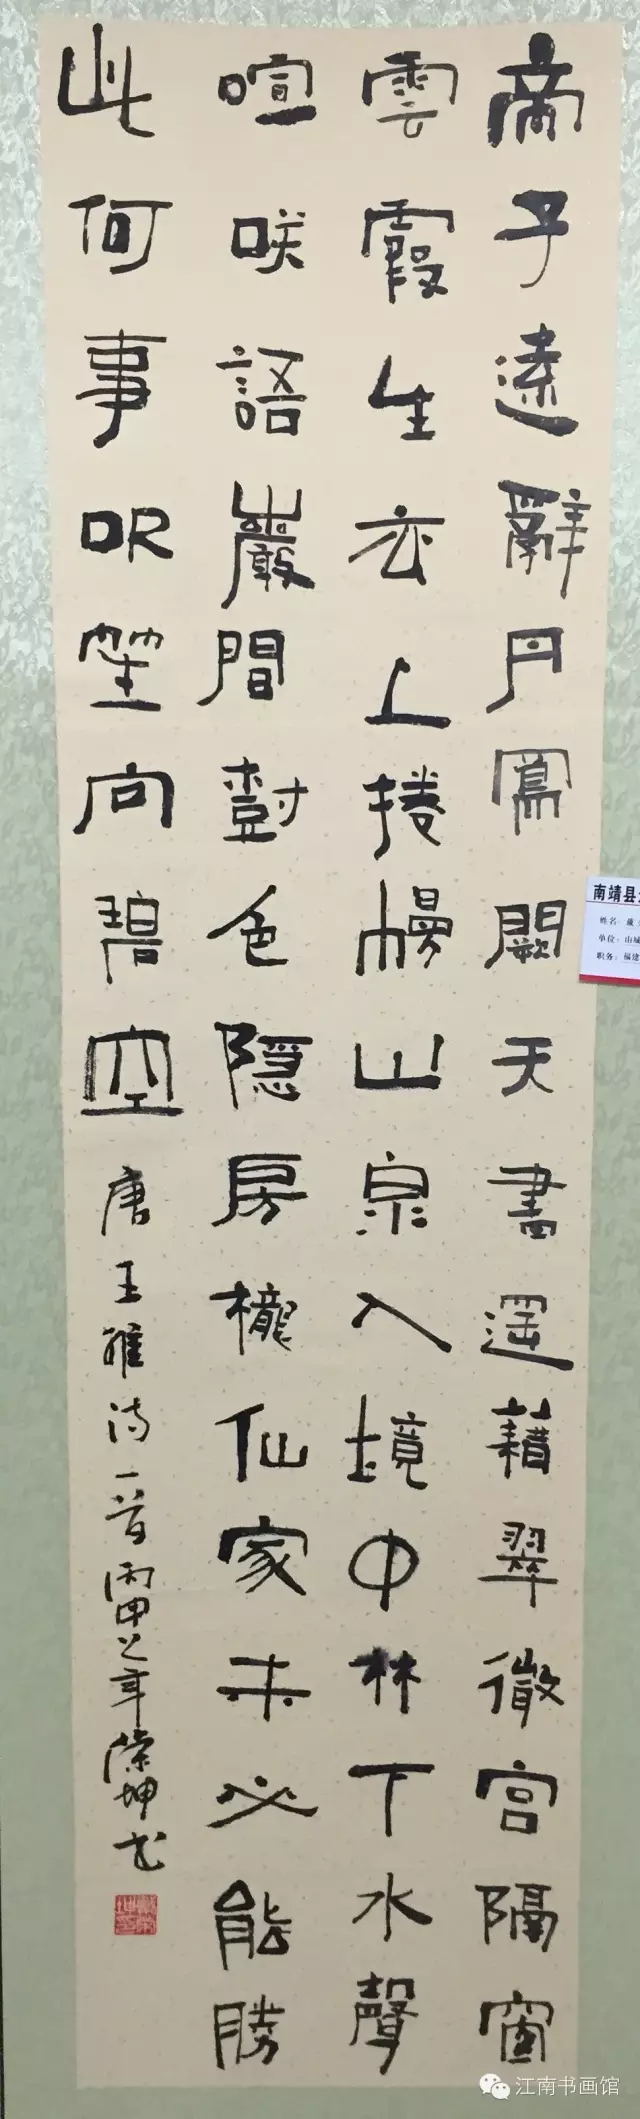 帝子遠辭丹鳳闕天書遥藉翠微宫隔窗
雲霞生衣上捲幔山泉入境中林下水聲
喧咲語巖間樹色隐房櫳仙家未必能勝
此何事吹笙向碧空
唐王維诗一首丙申之年榮坤书
南靖县
姓名：戴
单位：山城
职务：福建
江南书画馆